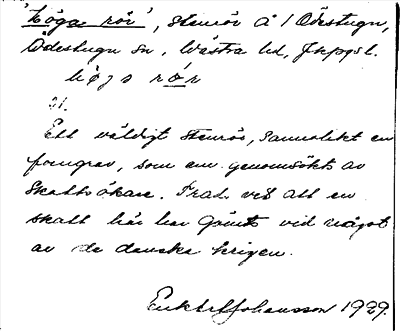 "Höga rör", stenrör å 1 Ödestugu,
Ödestugu sn, Västra hd, Jkpgs l.
hög a rör
21.
Ett väldigt stenrör, sannolikt en
forngrav, som en genomsökts av
skattsökare. Trad. vet att en
skatt här har gömts vid något
av de danska krigen.
Erik Johansson 1929.